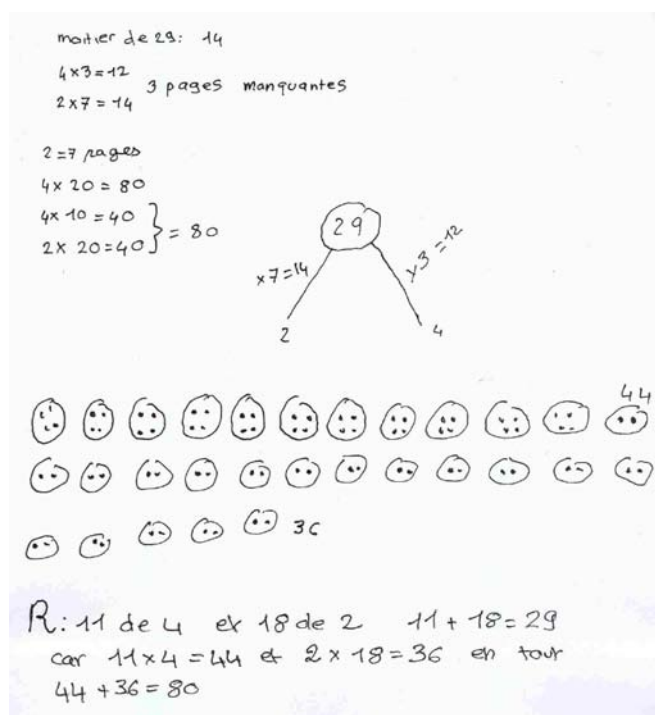 moitier de 29: 14
4x3=12
2x7=14
3 pages manquantes
2=7 pages
4x 20 = 80
4x 10 = 40
2x 20=40
} = 80
29
x7=14
x3=12
2
4
44
36
R: 11 de 4 et 18 de 2 11+18=29
car 11x4=44 et 2x18=36 en tout
44+36=80